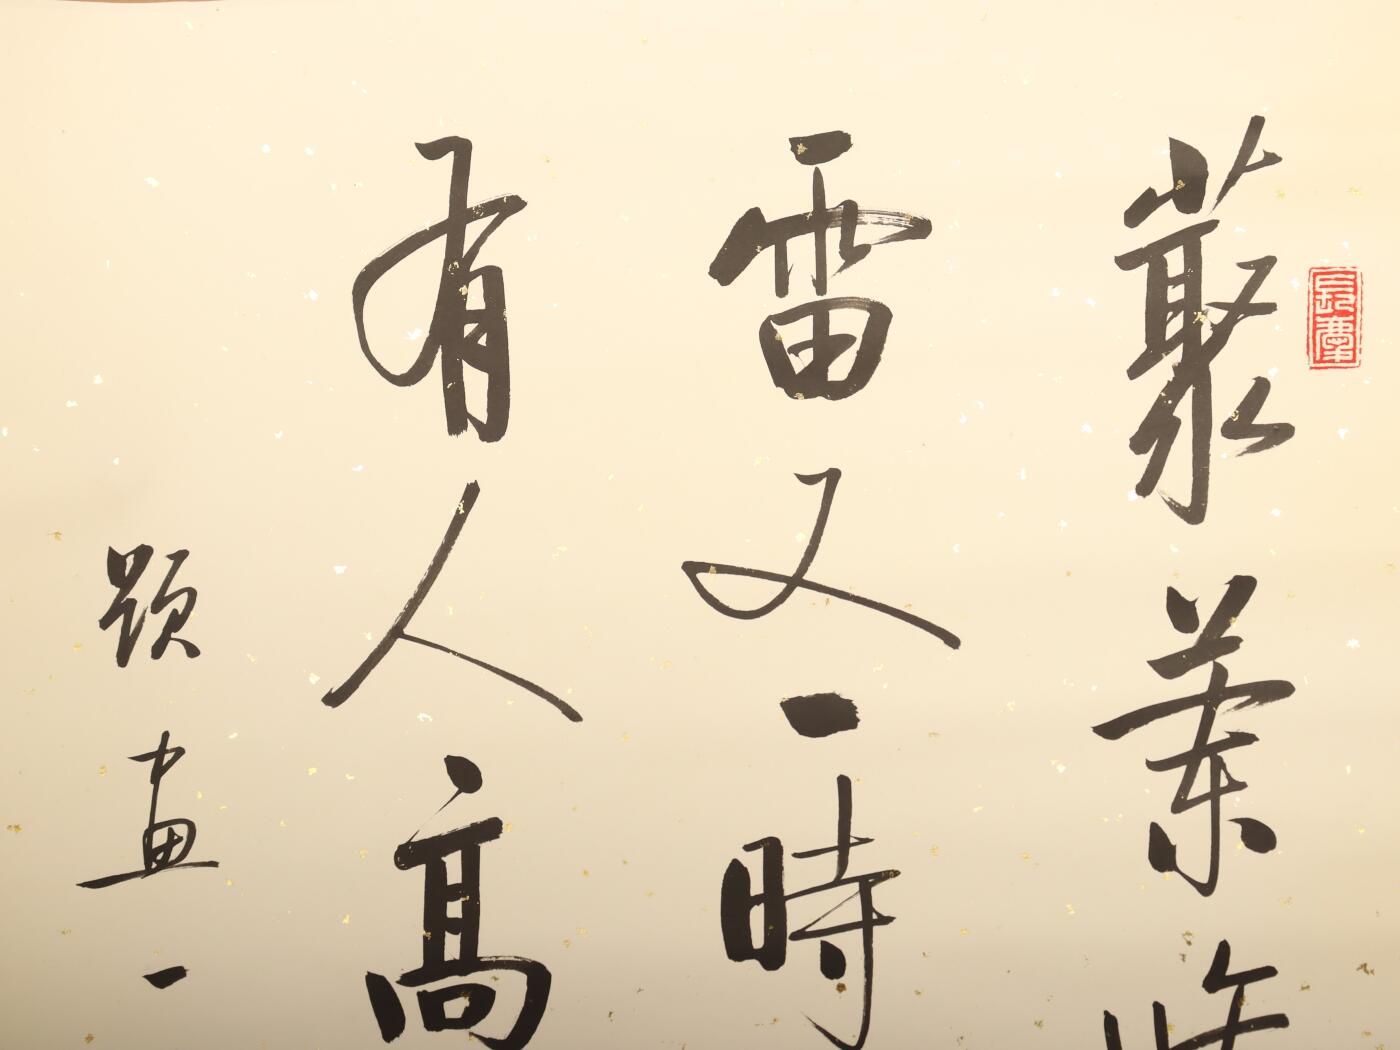 藂葉
雷又一時
有人高
題畫一